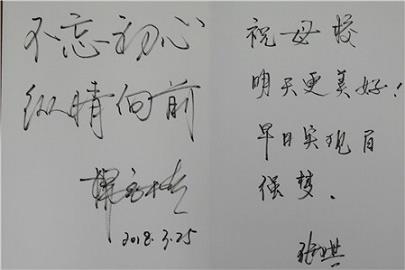 不忘初心
纵情向前
2018.3.25
祝母校
明天更美好！
早日实现百
强梦.